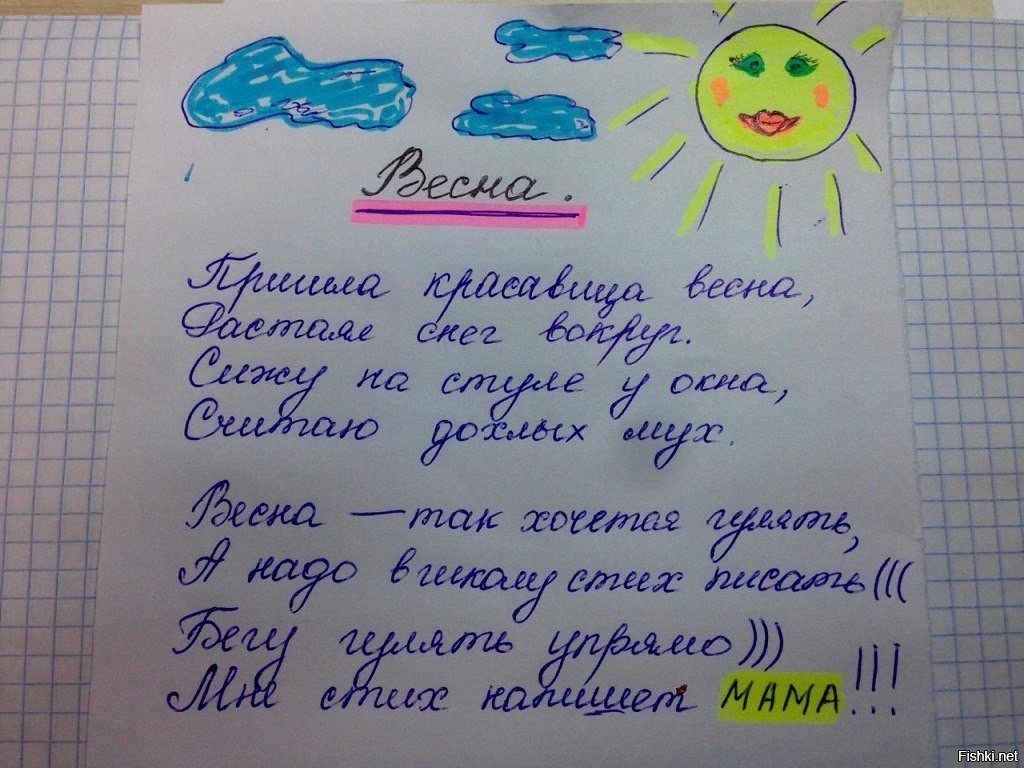 Весна.
Пришла красавица весна,
Растаял снег вокруг.
Сижу на стуле у окна,
Считаю дохлых мух.
Весна — так хочется гулять,
А надо в школу стих писать(((
Бегу гулять упрямо)))
Мне стих напишет МАМА!!!
Fishki.net